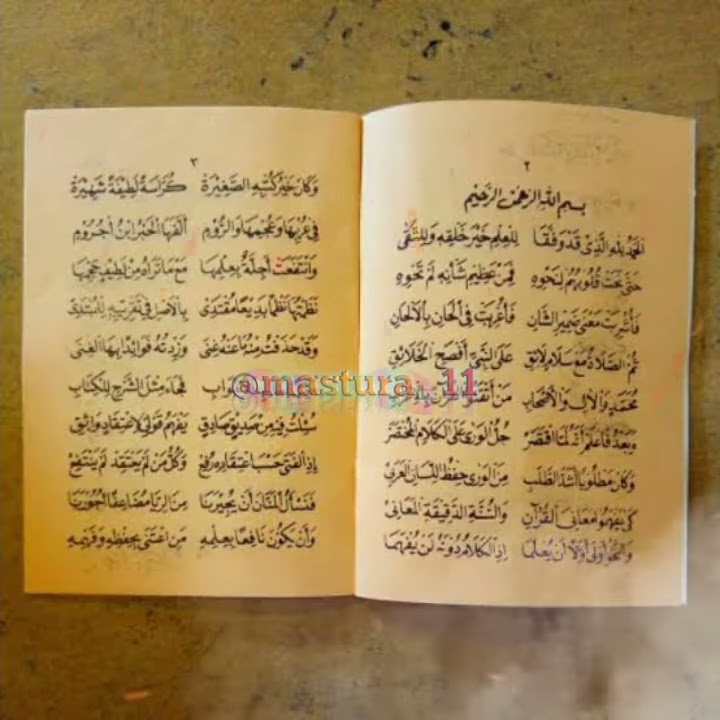 ٢
بِسْمِ اللهِ الرَّحْمٰنِ الرَّحِيْمِ
اَلْحَمْدُ لِلّٰهِ الَّذِيْ قَدْ وَفَّقَا لِلْعِلْمِ خَيْرَ خَلْقِهِ وَلِلتُّقَى
حَتَّى نَحَتْ قُلُوْبُهُمْ لِنَحْوِهِ فَمِنْ عَظِيْمِ شَأْنِهِ لَمْ تَحْوِهِ
فَأُشْرِبَتْ مَعْنَى ضَمِيْرِ الشَّانِ فَأَعْرَبَتْ فِى الْحَانِ بِالْأَلْحَانِ
ثُمَّ الصَّلَاةُ مَعَ سَلَامٍ لَائِقٍ عَلَى النَّبِيِّ أَفْصَحِ الْخَلَائِقِ
مُحَمَّدٍ وَالْآلِ وَالْأَصْحَابِ مَنْ
وَبَعْدُ فَاعْلَمْ أَنَّهُ لَمَّا اقْتَصَرْ جُلُّ الْوَرَى عَلَى الْكَلَامِ الْمُخْتَصَرْ
وَكَانَ مَطْلُوْبًا أَشَدَّ الطَّلَبِ مِنَ الْوَرَى حِفْظُ اللِّسَانِ الْعَرَبِيْ
كَيْ يَفْهَمُوْا مَعَانِيَ الْقُرْآنِ وَالسُّنَّةِ الدَّقِيْقَةِ الْمَعَانِيْ
وَالنَّحْوُ أَوْلَى أَوَّلًا أَنْ يُعْلَمَا إِذِ الْكَلَامُ دُوْنَهُ لَنْ يُفْهَمَا
٣
وَكَانَ خَيْرُ كُتْبِهِ الصَّغِيْرَةْ كُرَّاسَةً لَطِيْفَةً شَهِيْرَةْ
فِى عُرْبِهَا وَعُجْمِهَا وَالرُّوْمِ أَلَّفَهَا الْحَبْرُ ابْنُ آجُرُّوْمِ
وَانْتَفَعَتْ أَجِلَّةٌ بِعِلْمِهَا مَعَ مَا تَرَاهُ مِنْ لَطِيْفِ حَجْمِهَا
نَظَمْتُهَا نَظْمًا بَدِيْعًا مُقْتَدِيْ بِالْأَصْلِ فِى تَقْرِيْبِهِ لِلْمُبْتَدِيْ
وَقَدْ حَذَفْتُ مِنْهُ مَا عَنْهُ غِنَى وَزِدْتُهُ فَوَائِدًا بِهَا الْغِنَى
فَجَاءَ مِثْلَ الشَّرْحِ لِلْكِتَابِ
سُئِلْتُ فِيْهِ مِنْ صَدِيْقٍ صَادِقِ يَفْهَمُ قَوْلِيْ لِاعْتِقَادٍ وَاثِقِ
إِذِ الْفَتَى حَسَبَ اعْتِقَادِهِ رُفِعْ وَكُلُّ مَنْ لَمْ يَعْتَقِدْ لَمْ يَنْتَفِعْ
فَنَسْأَلُ الْمَنَّانَ أَنْ يُجِيْرَنَا مِنَ الرِّيَا مُضَاعِفًا أُجُوْرَنَا
وَأَنْ يَكُوْنَ نَافِعًا بِعِلْمِهِ مَنِ اعْتَنَى بِحِفْظِهِ وَفَهْمِهِ
@mastura_11